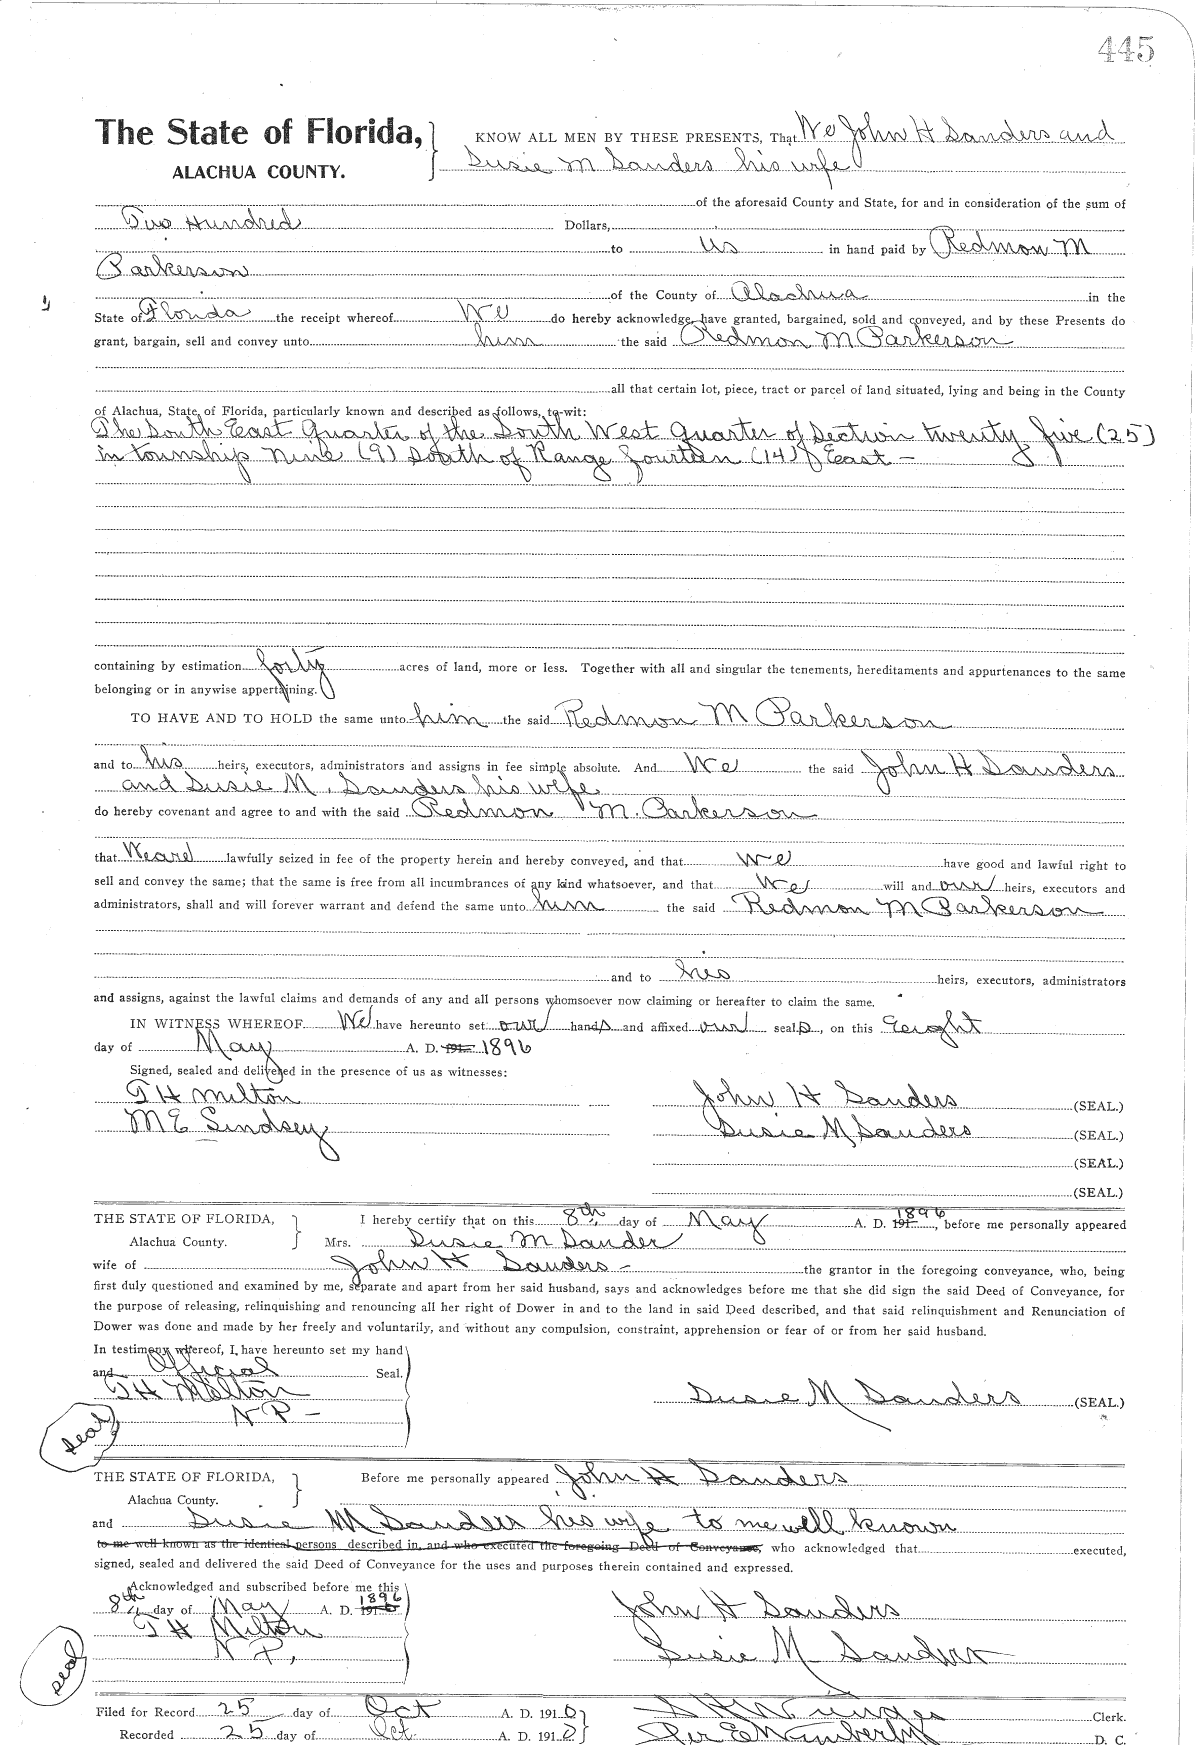 445
The State of Florida, KNOW ALL MEN BY THESE PRESENTS, That We John H Sanders and
ALACHUA COUNTY. Susie M Sanders his wife
of the aforesaid County and State, for and in consideration of the sum of
Two Hundred Dollars,
to us in hand paid by Redmon M
Parkerson
of the County of Alachua in the
State of Florida the receipt whereof We do hereby acknowledge, have granted, bargained, sold and conveyed, and by these Presents do
grant, bargain, sell and convey unto him the said Redmon M Parkerson
all that certain lot, piece, tract or parcel of land situated, lying and being in the County
of Alachua, State of Florida, particularly known and described as follows, to-wit:
The South East Quarter of the South West Quarter of Section twenty five (25)
in township nine (9) South of Range fourteen (14) East –
containing by estimation forty acres of land, more or less. Together with all and singular the tenements, hereditaments and appurtenances to the same
belonging or in anywise appertaining.
TO HAVE AND TO HOLD the same unto him the said Redmon M Parkerson
and to his heirs, executors, administrators and assigns in fee simple absolute. And We the said John H Sanders
and Susie M. Sanders his wife
do hereby covenant and agree to and with the said Redmon M. Parkerson
that We are lawfully seized in fee of the property herein and hereby conveyed, and that we have good and lawful right to
sell and convey the same; that the same is free from all incumbrances of any kind whatsoever, and that We will and our heirs, executors and
administrators, shall and will forever warrant and defend the same unto him the said Redmon M Parkerson
and to his heirs, executors, administrators
and assigns, against the lawful claims and demands of any and all persons whomsoever now claiming or hereafter to claim the same.
IN WITNESS WHEREOF We have hereunto set our hands and affixed our seals, on this Eeight
day of May A. D. 191 1896
Signed, sealed and delivered in the presence of us as witnesses:
T H Milton John H Sanders (SEAL.)
M E Lindsey Susie M Sanders (SEAL.)
(SEAL.)
(SEAL.)
THE STATE OF FLORIDA, I hereby certify that on this 8th day of May A. D. 191 1896, before me personally appeared
Alachua County. Mrs. Susie M Sander
wife of John H Sanders – the grantor in the foregoing conveyance, who, being
first duly questioned and examined by me, separate and apart from her said husband, says and acknowledges before me that she did sign the said Deed of Conveyance, for
the purpose of releasing, relinquishing and renouncing all her right of Dower in and to the land in said Deed described, and that said relinquishment and Renunciation of
Dower was done and made by her freely and voluntarily, and without any compulsion, constraint, apprehension or fear of or from her said husband.
In testimony whereof, I have hereunto set my hand
and Official Seal.
T H Milton Susie M Sanders (SEAL.)
N P –
seal
THE STATE OF FLORIDA, Before me personally appeared John H Sanders
Alachua County.
and Susie M Sanders his wife to me well known
to me well known as the identical persons described in, and who executed the foregoing Deed of Conveyance, who acknowledged that executed,
signed, sealed and delivered the said Deed of Conveyance for the uses and purposes therein contained and expressed.
Acknowledged and subscribed before me this
8th day of May A. D. 191 1896 John H Sanders
T H Milton
N P, Susie M Sanders
seal
Filed for Record 25 day of Oct A. D. 1910 Clerk.
Recorded 25 day of Oct A. D. 1910 D. C.